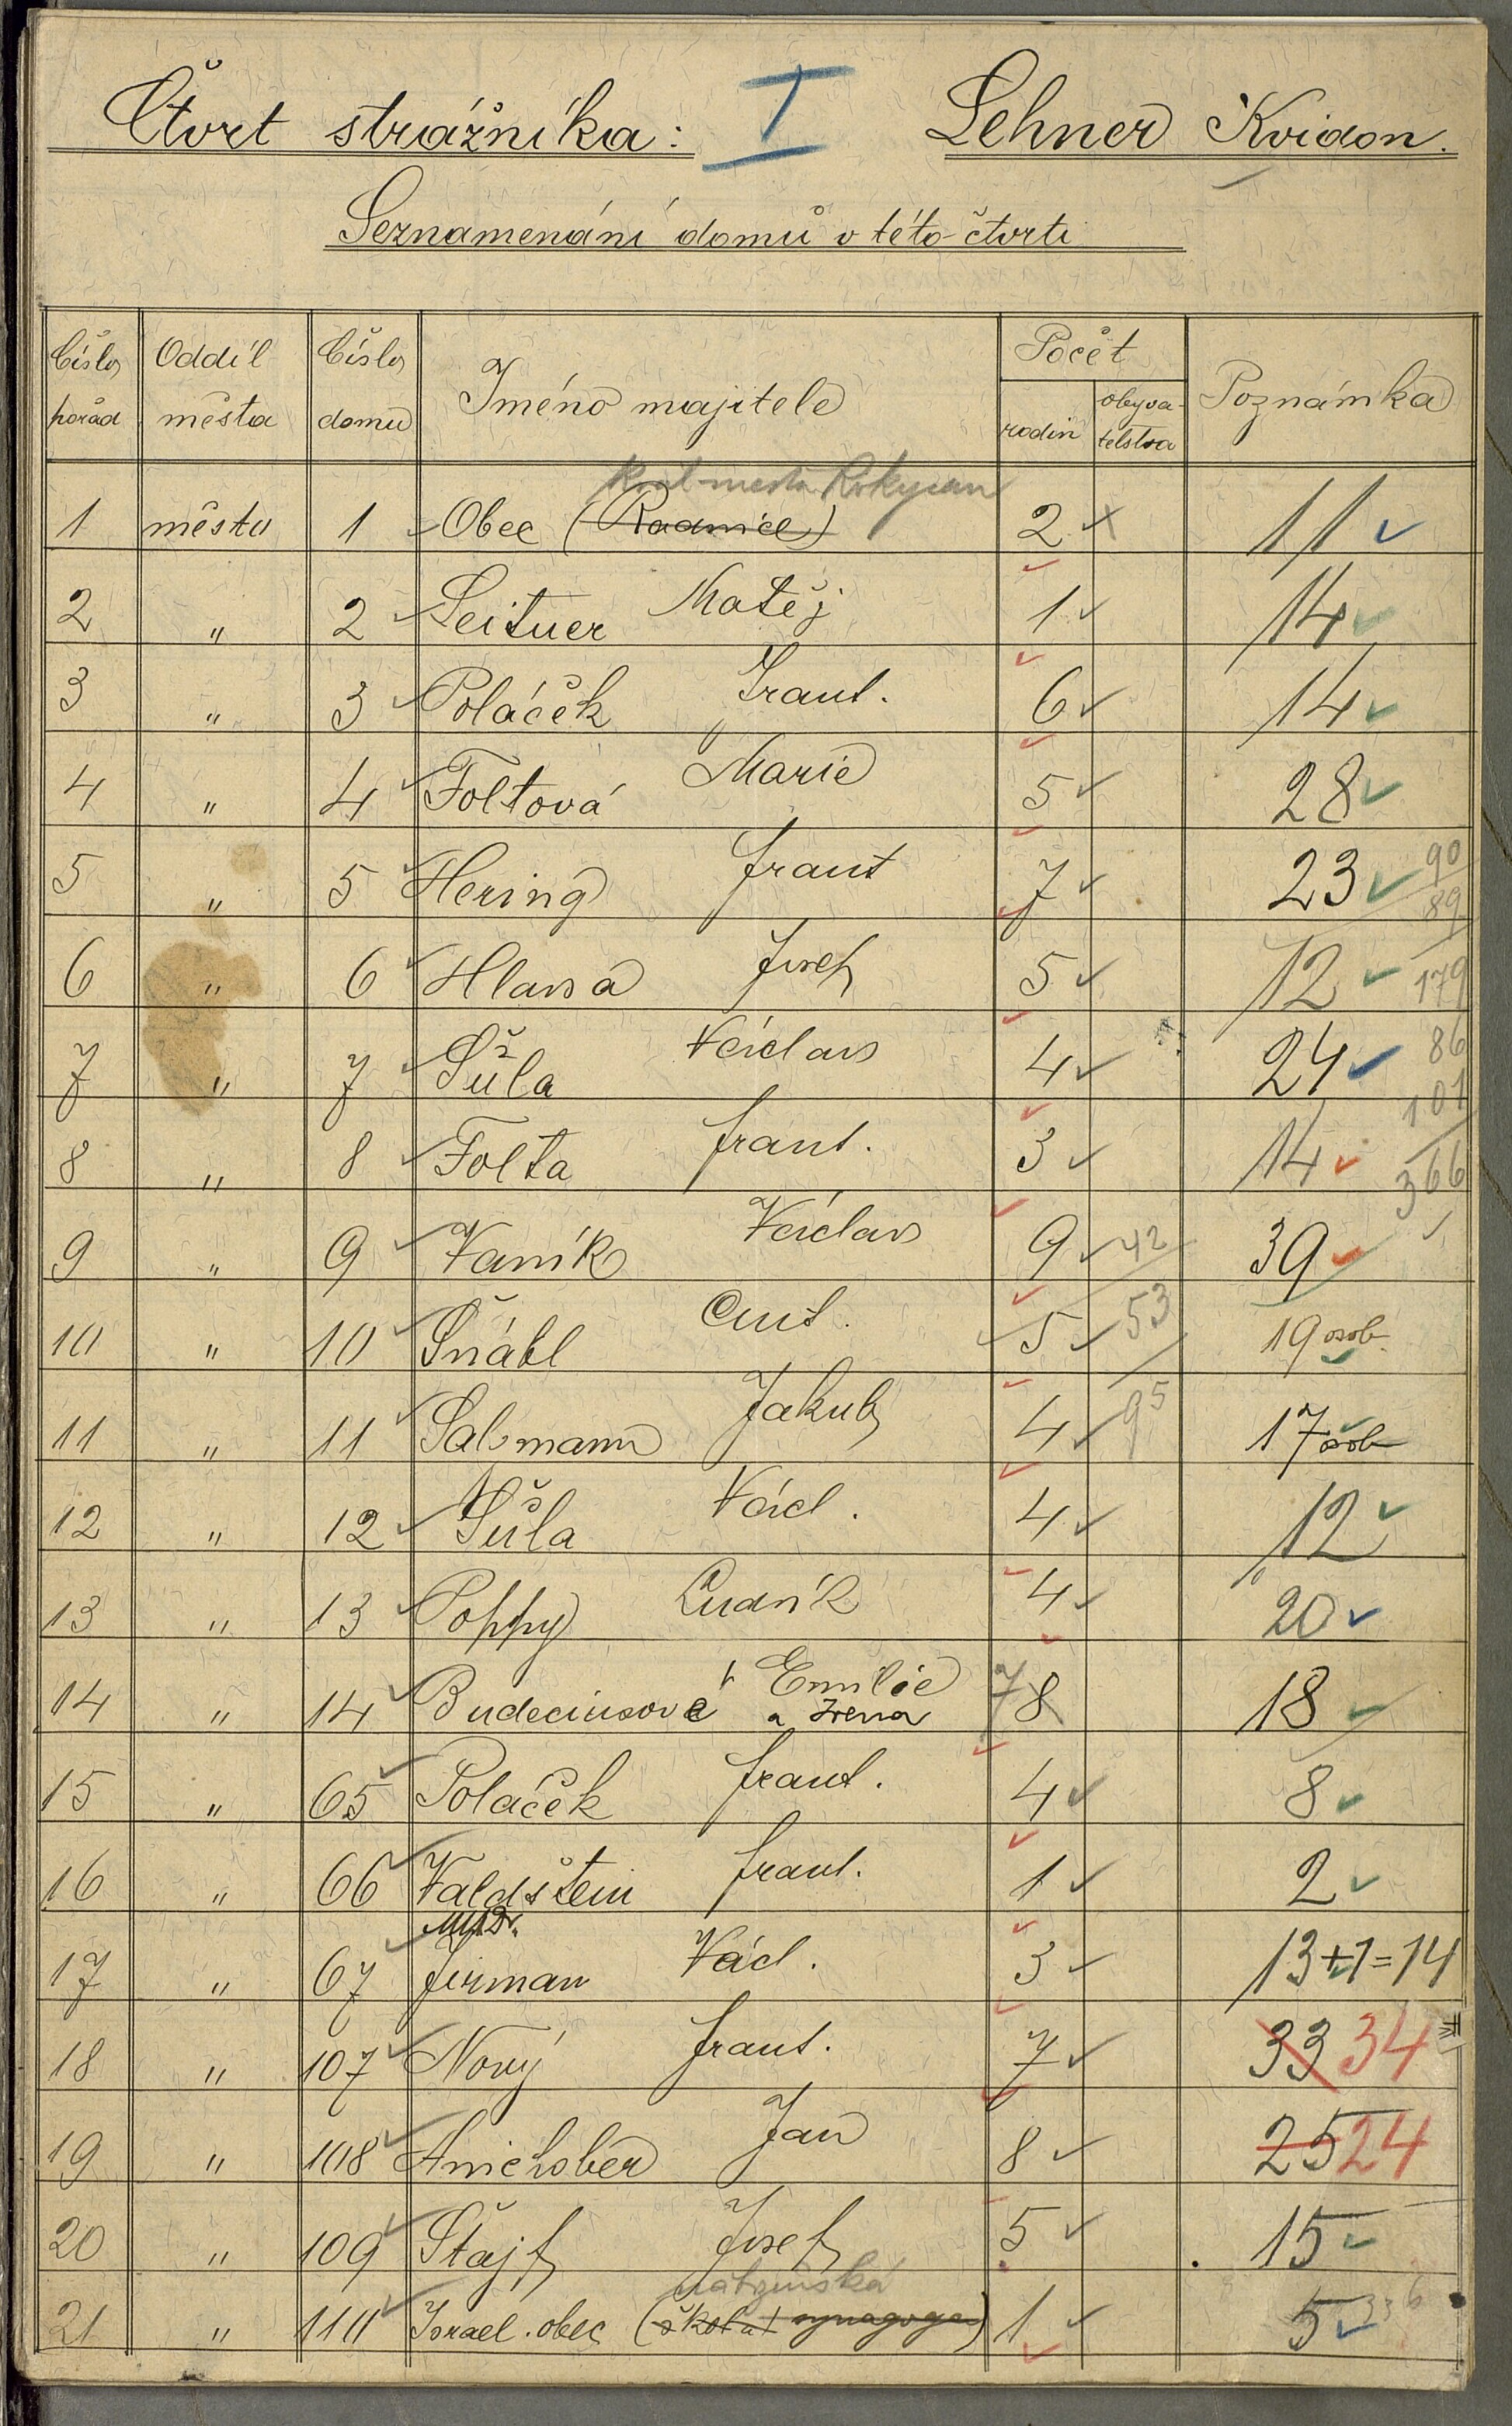 Čtvrt strážníka: I Lehner Kvidon.
Seznamenání domů v této čtvrti
Číslo pořád Oddíl města Číslo domu Jméno majitele Počet rodin obyvatelstva Poznámka
král. města Rokycan
1 město 1 Obec (Radnice) 2 11
2 " 2 Seitner Matěj 1 14
3 " 3 Poláček Frant. 6 14
4 " 4 Foltová Marie 5 28
5 " 5 Hering Frant 7 23 90 89
6 " 6 Hlava Josef 5 12 179
7 " 7 Šůla Václav 4 24 86 101
8 " 8 Folta Frant. 3 14 366
9 " 9 Vaník Václav 9 42 39
10 " 10 Šnábl Ant. 5 53 19 osob
11 " 11 Salzmann Jakub 4 95 17 osob
12 " 12 Šůla Václ. 4 12
13 " 13 Poppy Ludvík 4 20
14 " 14 Budeciusová Emilie a Irena 7 8 18
15 " 65 Poláček Frant. 4 8
16 " 66 Valdštein Frant. 1 2
MUDr.
17 " 67 Jirman Václ. 3 13+1=14
18 " 107 Nový Frant. 7 33 34
19 " 108 Jan 8 25 24
20 " 109 Štajf Josef 5 15
21 " 110 Israel. obec (škola synagoga) 1 5